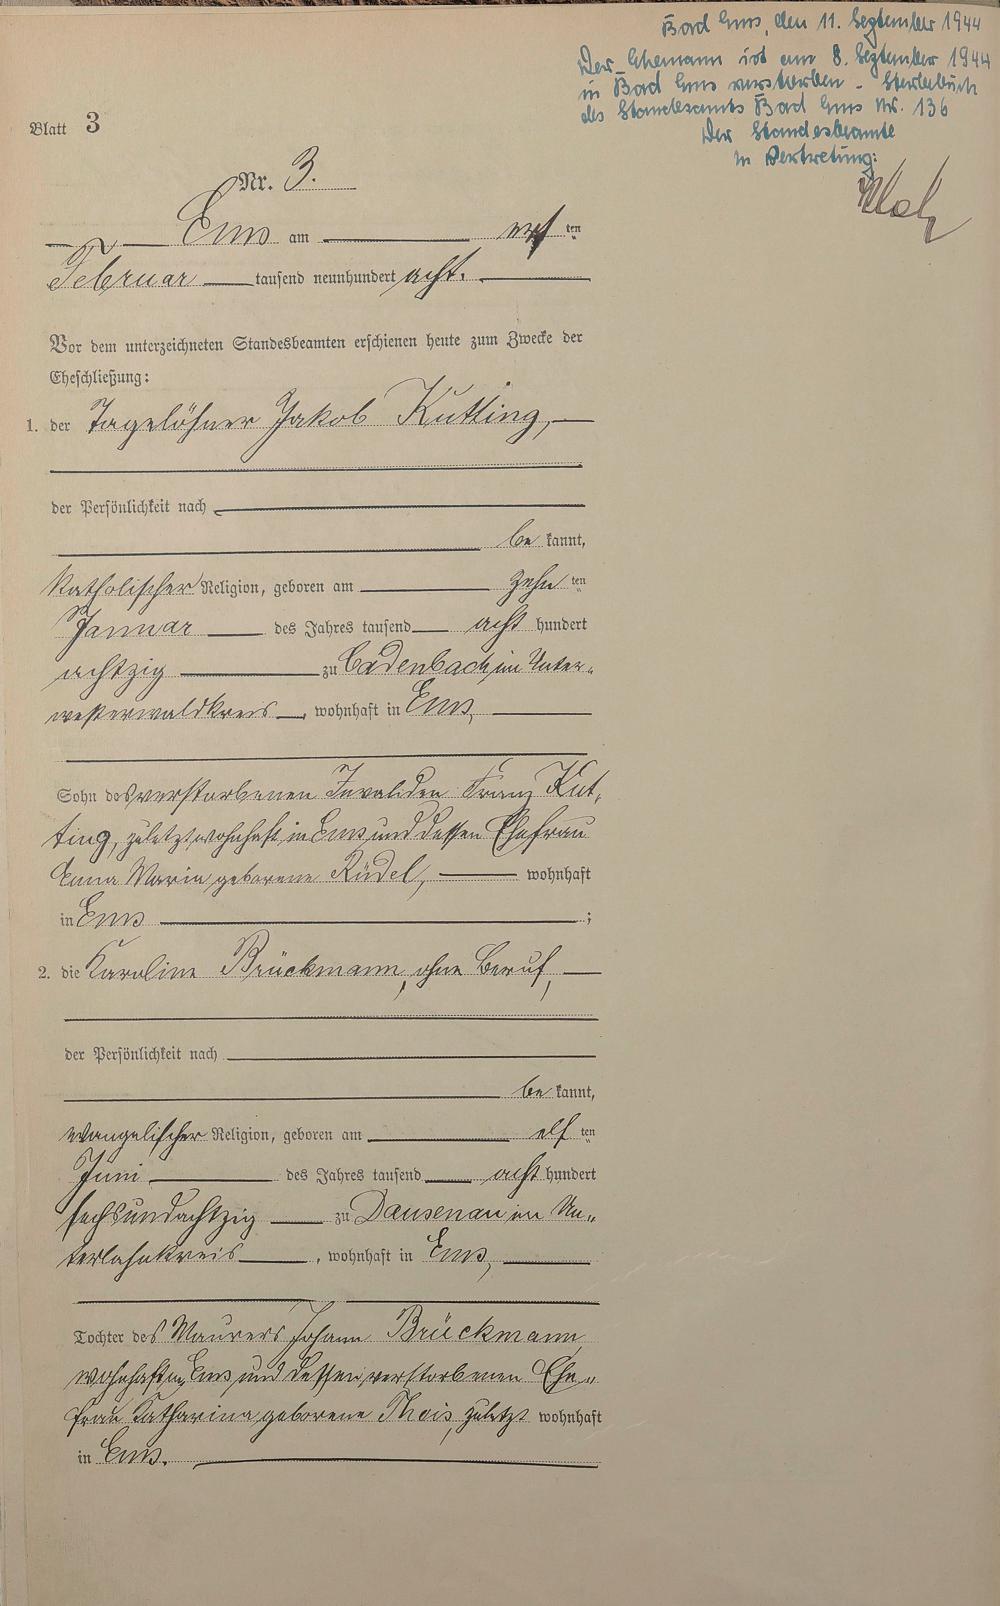 Bad Ems, den 11. September 1944
Der Ehemann ist am 8. September 1944
in Bad Ems verstorben - Sterbebuch
des Standesamts Bad Ems Nr. 136
Der Standesbeamte
In Vertretung:
Blatt 3
Nr. 3.
Ems am ten
Februar tausend neunhundert acht.
Vor dem unterzeichneten Standesbeamten erschienen heute zum Zwecke der
Eheschließung:
1. der Tagelöhner Jakob Kutting,
der Persönlichkeit nach
be kannt,
katholischer Religion, geboren am zehn ten
Januar des Jahres tausend acht hundert
achtzig zu Cadenbach im Unter-
westerwaldkreis, wohnhaft in Ems,
Sohn des verstorbenen Invaliden Franz Kut-
ting, zuletzt wohnhaft in Ems und dessen Ehefrau
Anna Maria geborene Rüdel, wohnhaft
in Ems ;
2. die Karoline Brückmann, ohne Beruf,
der Persönlichkeit nach
be kannt,
evangelischer Religion, geboren am elf ten
Juni des Jahres tausend acht hundert
sechsundachtzig zu Dausenau im Un-
terlahnkreis, wohnhaft in Ems,
Tochter des Maurers Johann Brückmann
wohnhaft in Ems und dessen verstorbenen Ehe-
frau Katharina geborene Theis, zuletzt wohnhaft
in Ems.